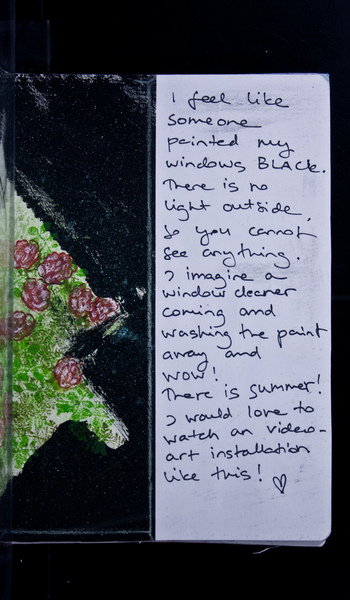 I feel like
someone
painted my
windows BLACK.
There is no
light outside,
so you cannot
see anything.
I imagine a
window cleaner
coming and
washing the paint
away and
wow!
There is summer!
I would love to
watch an video-
art installation
like this! ♡